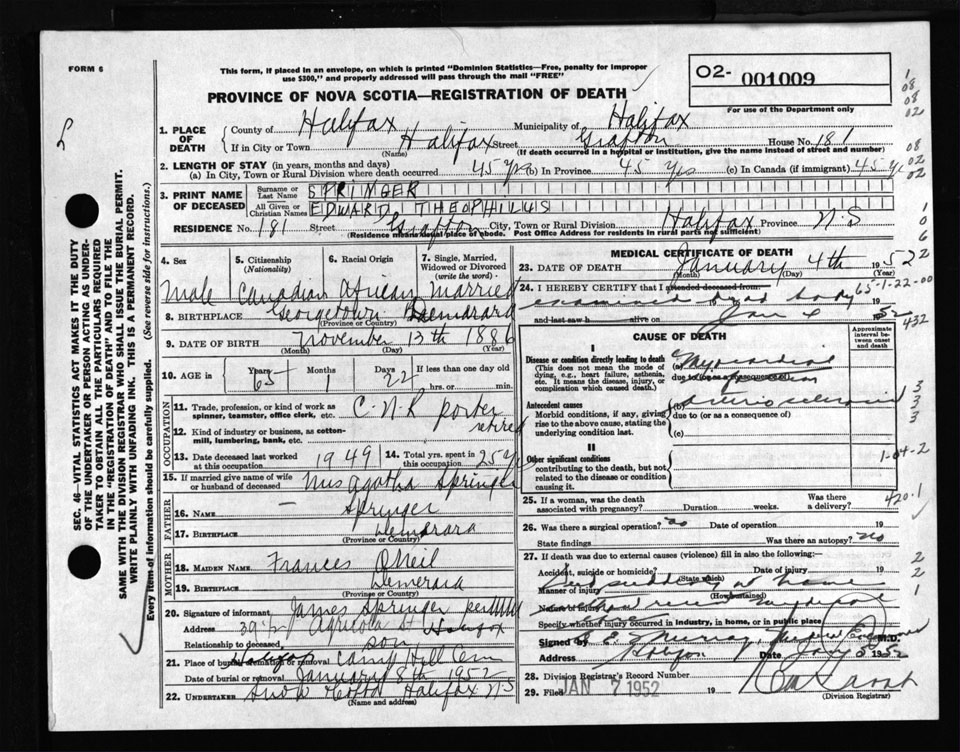 FORM 6
This form, if placed in an envelope, on which is printed "Dominion Statistics—Free, penalty for improper
use $300," and properly addressed will pass through the mail "FREE"
02- 001009
For use of the Department only
PROVINCE OF NOVA SCOTIA—REGISTRATION OF DEATH
1. PLACE OF DEATH
County of Halifax Municipality of Halifax
If in City or Town Halifax Street Grafton House No. 181
(Name) (If death occurred in a hospital or institution, give the name instead of street and number)
2. LENGTH OF STAY (in years, months and days)
(a) In City, Town or Rural Division where death occurred 45 yrs (b) In Province 45 yrs (c) In Canada (if immigrant) 45 yrs
3. PRINT NAME OF DECEASED
Surname or Last Name SPRINGER
All Given or Christian Names EDWARD THEOPHILUS
RESIDENCE No. 181 Street Grafton City, Town or Rural Division Halifax Province N.S
(Residence means usual place of abode. Post Office Address for residents in rural parts not sufficient)
4. Sex male
5. Citizenship (Nationality) Canadian
6. Racial Origin African
7. Single, Married, Widowed or Divorced (write the word) married
8. BIRTHPLACE Georgetown
(Province or Country)
9. DATE OF BIRTH November 13th 1886
(Month) (Day) (Year)
10. AGE Years 65 Months 1 Days 22 If less than one day old
hrs. or min.
OCCUPATION
11. Trade, profession, or kind of work as spinner, teamster, office clerk, etc. C.N.R porter
retired
12. Kind of industry or business, as cotton-mill, lumbering, bank, etc.
13. Date deceased last worked at this occupation 1949
14. Total yrs. spent in this occupation 25 yrs
15. If married give name of wife or husband of deceased Mrs Agatha Springer
FATHER
16. NAME — Springer
17. BIRTHPLACE Demerara
(Province or Country)
MOTHER
18. MAIDEN NAME Frances O'Neil
19. BIRTHPLACE Demerara
(Province or Country)
20. Signature of informant James Springer per
Address 39 1/2 Agricola St Halifax
Relationship to deceased son
21. Place of burial, cremation or removal Halifax Camp Hill Cem
Date of burial or removal January 8th 1952
22. UNDERTAKER Snow Halifax N.S
(Name and address)
MEDICAL CERTIFICATE OF DEATH
23. DATE OF DEATH January 4th 1952
(Month) (Day) (Year)
24. I HEREBY CERTIFY that I attended deceased from: 65-1-22-00
examined dead body
and last saw h alive on Jan 4 1952
432
CAUSE OF DEATH
Approximate interval between onset and death
I
Disease or condition directly leading to death
(This does not mean the mode of dying, e.g., heart failure, asthenia, etc. It means the disease, injury, or complication which caused death.)
(a) Myocardial
due to (or as a consequence of)
Antecedent causes
Morbid conditions, if any, giving rise to the above cause, stating the underlying condition last.
(b)
due to (or as a consequence of)
(c)
II
Other significant conditions
contributing to the death, but not related to the disease or condition causing it.
25. If a woman, was the death associated with pregnancy? Duration weeks. Was there a delivery?
420.1
26. Was there a surgical operation? no Date of operation 19
State findings Was there an autopsy? no
27. If death was due to external causes (violence) fill in also the following:—
Accident, suicide or homicide? Date of injury 19
(State which)
Manner of injury died suddenly at home
(How sustained)
Nature of injury
Specify whether injury occurred in industry, in home, or in public place
Signed by Murray M.D.
Address Halifax Date Jan 5 1952
28. Division Registrar's Record Number
29. Filed JAN 7 1952 19
(Division Registrar)
SEC. 46—VITAL STATISTICS ACT MAKES IT THE DUTY
OF THE UNDERTAKER OR PERSON ACTING AS UNDER-
TAKER TO OBTAIN ALL THE PARTICULARS REQUIRED
IN THE "REGISTRATION OF DEATH" AND TO FILE THE
SAME WITH THE DIVISION REGISTRAR WHO SHALL ISSUE THE BURIAL PERMIT.
WRITE PLAINLY WITH UNFADING INK. THIS IS A PERMANENT RECORD.
Every item of information should be carefully supplied. (See reverse side for instructions.)